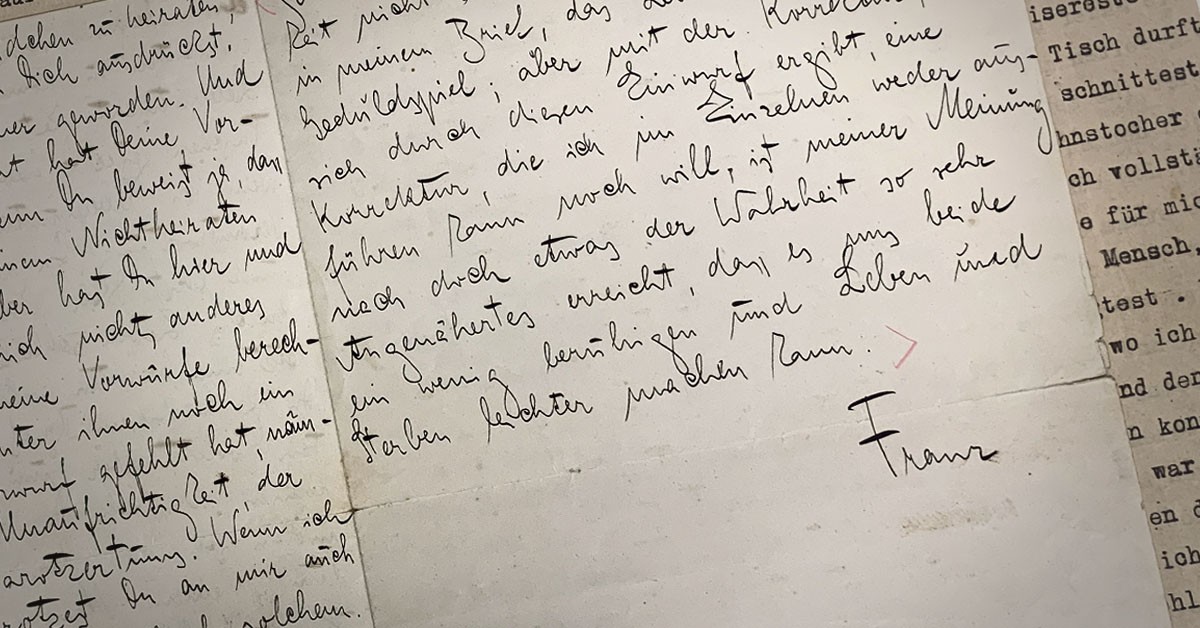 dchen zu heiraten,
Dich ausdrückst,
er geworden. Und
hat Deine Vor-
Du beweist ja, dass
Nichtheiraten
ber hast Du hier und
mich nichts anderes
meine Vorwürfe berech-
unter ihnen noch ein
rwurf gefehlt hat, näm-
Unaufrichtigkeit, der
arotzertums. Wenn ich
rotzest Du an mir auch
solchem.
keit nicht
in meinem Brief, das
Geduldspiel; aber mit der Korrektur
sich durch diesen Einwurf ergibt, eine
Korrektur, die ich im Einzelnen weder aus-
führen kann noch will, ist meiner Meinung
nach doch etwas der Wahrheit so sehr
Angenähertes erreicht, dass es uns beide
ein wenig beruhigen und Leben und
Sterben leichter machen kann.
Franz
Tisch durft
schnittest
hnstocher
ch vollstä
e für mic
Mensch,
test .
wo ich
nd der
n kon
war
en d
ich
hl